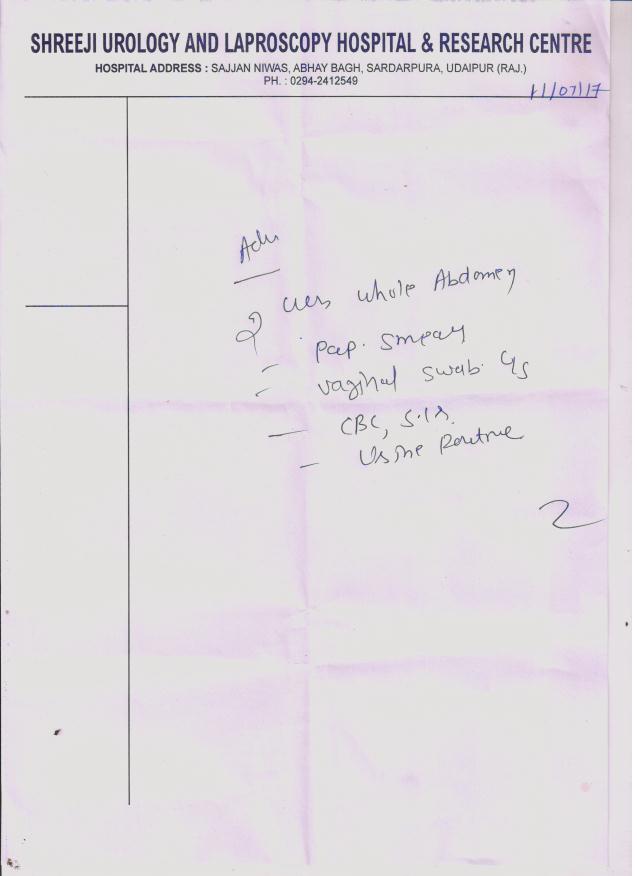 SHREEJI UROLOGY AND LAPROSCOPY HOSPITAL & RESEARCH CENTRE
HOSPITAL ADDRESS : SAJJAN NIWAS, ABHAY BAGH, SARDARPURA, UDAIPUR (RAJ.)
PH. : 0294-2412549
11/07/17
Adv
whole Abdomen
Pap. Smear
vaginal swab c/s
CBC,
Urine Routine